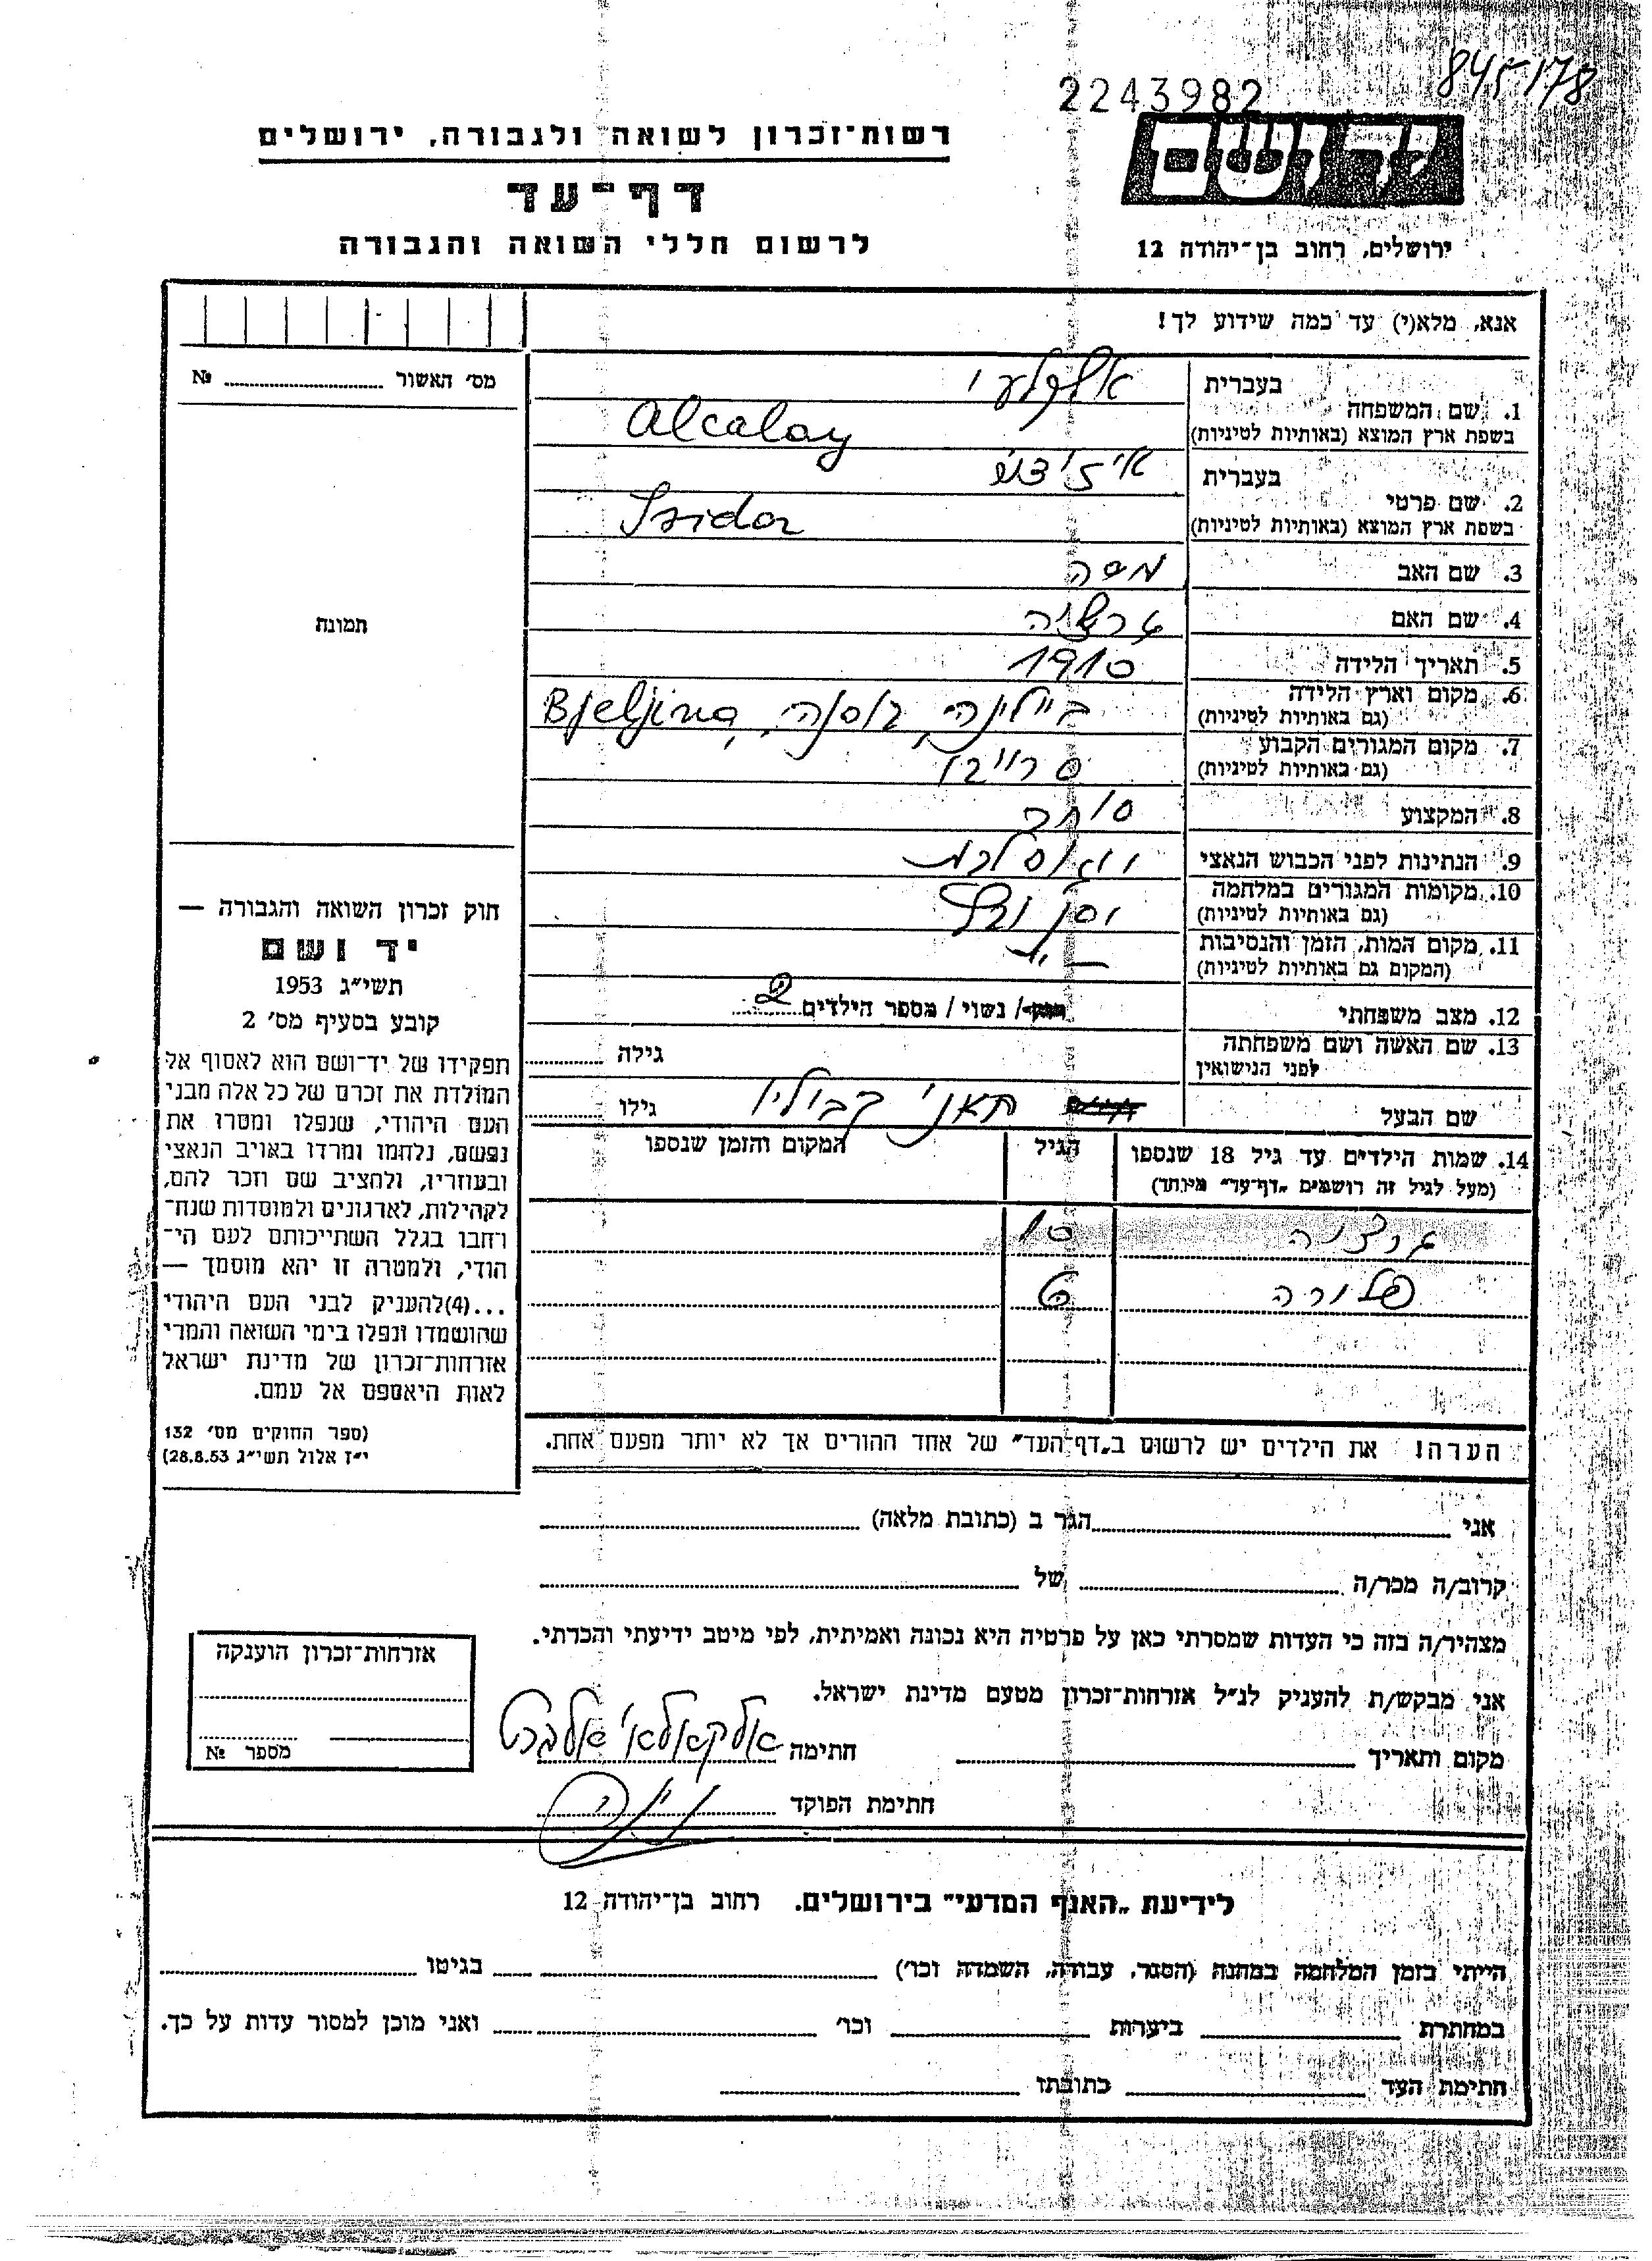 845178
2243982
יד ושם
ירושלים, רחוב בן־יהודה 12
רשות־זכרון לשואה ולגבורה, ירושלים
דף־עד
לרשום חללי השואה והגבורה
אנא, מלא(י) עד כמה שידוע לך!
1. שם המשפחה
בעברית
אלקלעי
בשפת ארץ המוצא (באותיות לטיניות)
Alcalay
2. שם פרטי
בעברית
בשפת ארץ המוצא (באותיות לטיניות)
Isidor
3. שם האב
משה
4. שם האם
5. תאריך הלידה
1910
6. מקום וארץ הלידה
(גם באותיות לטיניות)
ביילינה, בוסנה, Bjeljina
7. מקום המגורים הקבוע
(גם באותיות לטיניות)
סרייבו
8. המקצוע
סוחר
9. הנתינות לפני הכבוש הנאצי
10. מקומות המגורים במלחמה
(גם באותיות לטיניות)
11. מקום המות, הזמן והנסיבות
(המקום גם באותיות לטיניות)
12. מצב משפחתי
נשוי / מספר הילדים 2
13. שם האשה ושם משפחתה
לפני הנישואין
גילה
שם הבעל
קבוליו
גילו
14. שמות הילדים עד גיל 18 שנספו
(מעל לגיל זה רושמים „דף־עד" מיוחד)
הגיל
המקום והזמן שנספו
10
פלורה 6
הערה! את הילדים יש לרשום ב„דף־העד" של אחד ההורים אך לא יותר מפעם אחת.
מס׳ האשור №
תמונה
חוק זכרון השואה והגבורה —
יד ושם
תשי״ג 1953
קובע בסעיף מס׳ 2
תפקידו של יד־ושם הוא לאסוף אל
המולדת את זכרם של כל אלה מבני
העם היהודי, שנפלו ומסרו את
נפשם, נלחמו ומרדו באויב הנאצי
ובעוזריו, ולהציב שם וזכר להם,
לקהילות, לארגונים ולמוסדות שנח־
רבו בגלל השתייכותם לעם הי־
הודי, ולמטרה זו יהא מוסמך —
...(4)להעניק לבני העם היהודי
שהושמדו ונפלו בימי השואה והמרי
אזרחות־זכרון של מדינת ישראל
לאות היאספם אל עמם.
(ספר החוקים מס׳ 132
י״ז אלול תשי״ג 28.8.53)
אני
הגר ב (כתובת מלאה)
קרוב/ה מכר/ה
של
מצהיר/ה בזה כי העדות שמסרתי כאן על פרטיה היא נכונה ואמיתית, לפי מיטב ידיעתי והכרתי.
אני מבקש/ת להעניק לנ״ל אזרחות־זכרון מטעם מדינת ישראל.
מקום ותאריך
חתימה אלקאלאי אלברט
חתימת הפוקד
אזרחות־זכרון הוענקה
מספר №
לידיעת „האגף המדעי" בירושלים. רחוב בן־יהודה 12
הייתי בזמן המלחמה במחנה (הסגר, עבודה, השמדה וכו׳)
בגיטו
במחתרת
ביערות
וכו׳
ואני מוכן למסור עדות על כך.
חתימת העד
כתובתו